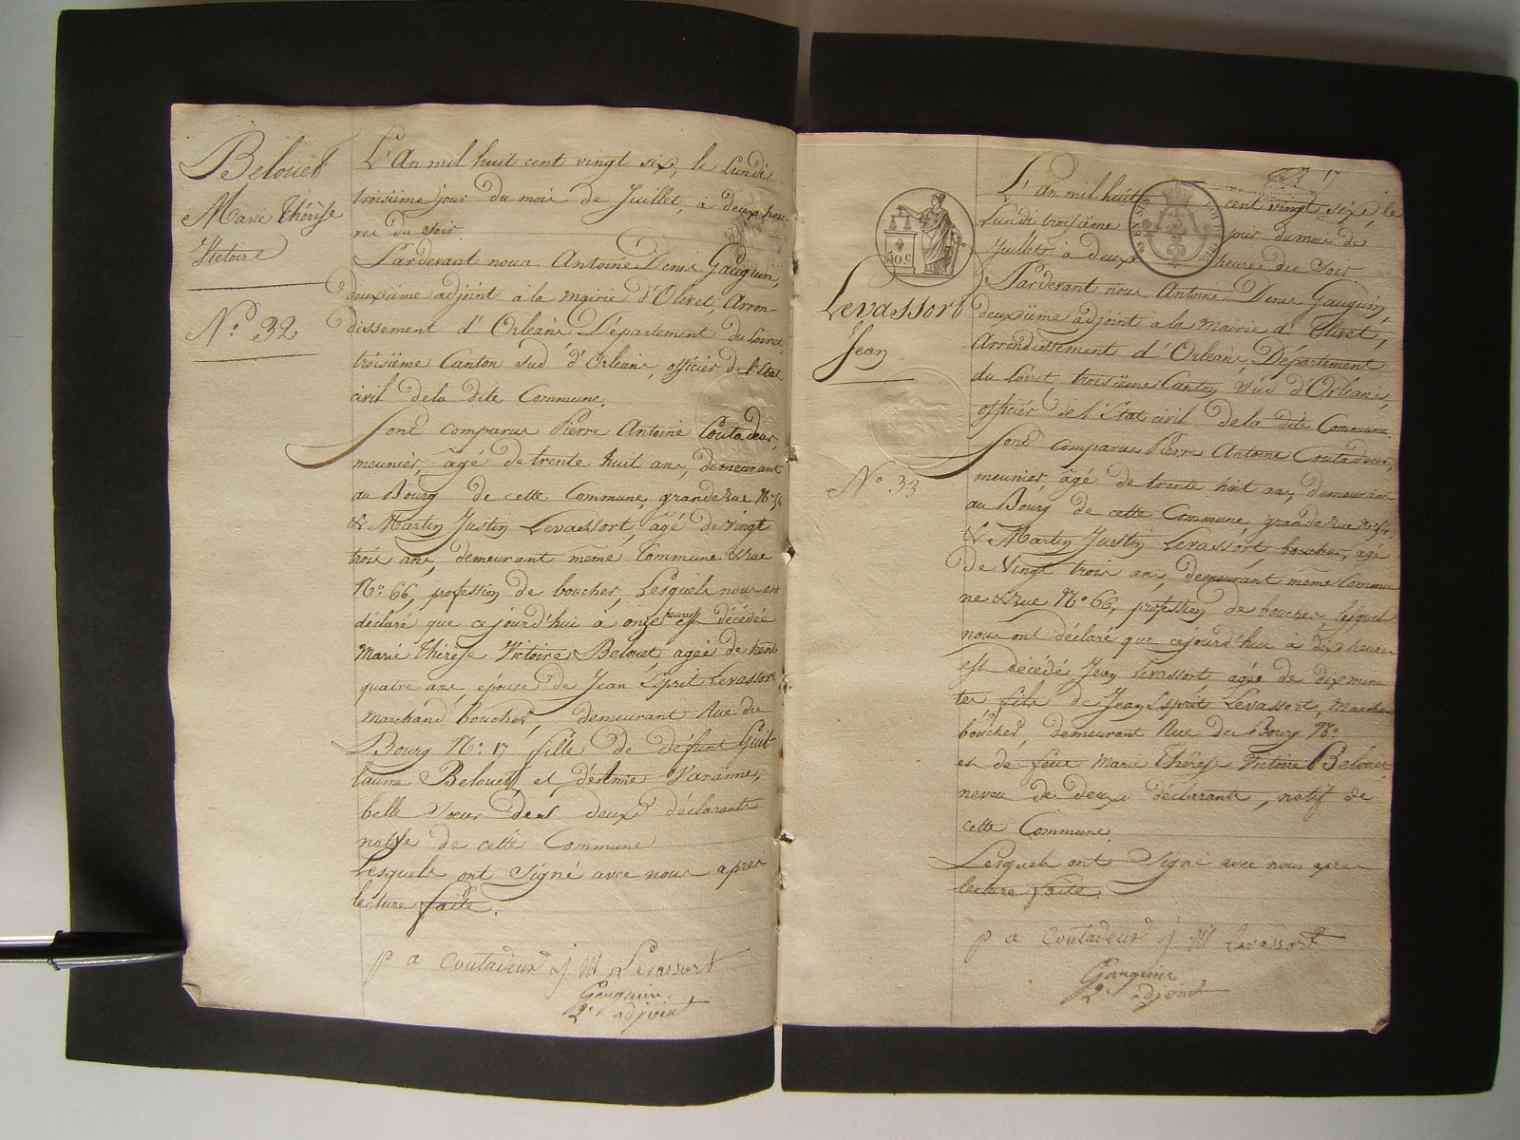 Belouet
Marie Thérèse
Victoire
N.° 32
L'An mil huit cent vingt six, le Lundi
troisième jour du mois de Juillet, à deux heu-
res du soir.
Pardevant nous Antoine Denis Gauguin,
deuxième adjoint à la mairie d'Olivet, Arron-
dissement d'Orléans Département du Loiret
troisième Canton sud d'Orléans, officier de l'Etat
civil de la dite Commune.
Sont comparus Pierre Antoine Coutadeur,
meunier, âgé de trente huit ans, demeurant
au Bourg de cette Commune, grande rue
& Martin Justin Levassort, âgé de vingt
trois ans, demeurant même Commune & rue
N.° 66, profession de boucher, Lesquels nous ont
déclaré que cejourd'hui à onze heures est décédée
Marie Thérèse Victoire Belouet agée de trente
quatre ans, épouse de Jean Esprit Levassort
marchand boucher, demeurant Rue du
Bourg N.° 17 fille de défunt Guil
laume Belouet, et d'Anne
belle soeur des deux déclarants
native de cette Commune
Lesquels ont signé avec nous après
lecture faite.
p a coutadeur j M Levassort
Gauguin
2.e adjoint
17
L'An mil huit cent vingt six, le
Lundi troisième jour du mois de
Juillet à deux heures du soir
Pardevant nous Antoine Denis Gauguin,
deuxième adjoint à la mairie d'Olivet,
Arrondissement d'Orléans, Département
du Loiret troisième Canton sud d'Orléans,
officier de l'Etat civil de la dite Commune.
Levassort
Jean
N.° 33
Sont comparus Pierre Antoine Coutadeur,
meunier, âgé de trente huit ans, demeurant
au Bourg de cette Commune, grande rue
& Martin Justin Levassort boucher, agé
de vingt trois ans, demeurant même Commu
ne & rue N.° 66, profession de boucher, lesquels
nous ont déclaré que cejourd'hui à dix heures
est décédé Jean Levassort agé de dix minu
tes fils de Jean Esprit Levassort, marchand
boucher, demeurant Rue du Bourg N.°
et de feue Marie Thérèse Victoire Belouet
neveu de deux déclarants, natif de
cette Commune
Lesquels ont Signé avec nous après
lecture faite.
p a coutadeur j M Levassort
Gauguin
2.e adjoint